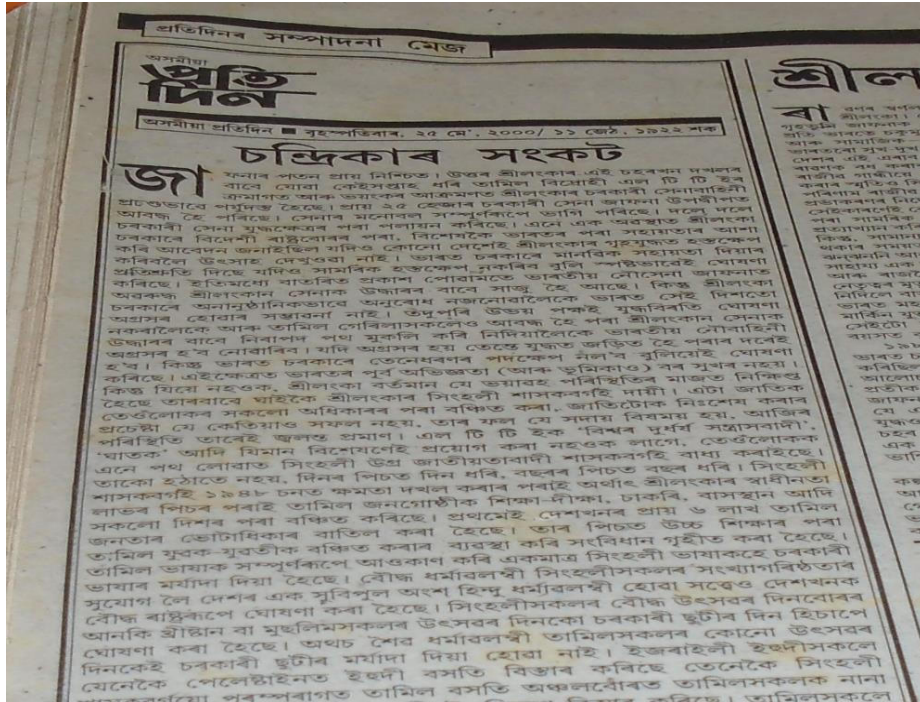 প্ৰতিদিনৰ সম্পাদনা মেজ
অসমীয়া
প্ৰতি
দিন
অসমীয়া প্ৰতিদিন ■ বৃহস্পতিবাৰ, ২৫ মে', ২০০০/ ১১ জেঠ, ১৯২২ শক
চন্দ্ৰিকাৰ সংকট
জাফনাৰ পতন প্ৰায় নিশ্চিত। উত্তৰ শ্ৰীলংকাৰ এই চহৰখন দখলৰ
বাবে যোৱা কেইসপ্তাহ ধৰি তামিল বিদ্ৰোহী এল টি টি ইৰ
ক্ৰমাগত আৰু ভয়ংকৰ আক্ৰমণত শ্ৰীলংকাৰ চৰকাৰী সেনাবাহিনী
প্ৰচণ্ডভাবে পৰ্যুদস্ত হৈছে। প্ৰায় ২৫ হেজাৰ চৰকাৰী সেনা জাফনা উপদ্বীপত
আবদ্ধ হৈ পৰিছে। সেনাৰ মনোবল সম্পূৰ্ণৰূপে ভাগি পৰিছে। দলে দলে
চৰকাৰী সেনা যুদ্ধক্ষেত্ৰৰ পৰা পলায়ন কৰিছে। এনে এক অৱস্থাত শ্ৰীলংকা
চৰকাৰে বিদেশী ৰাষ্ট্ৰবোৰৰ পৰা, বিশেষকৈ ভাৰতৰ পৰা সহায়তাৰ আশা
কৰি আবেদন জনাইছিল যদিও কোনো দেশেই শ্ৰীলংকাৰ গৃহযুদ্ধত হস্তক্ষেপ
কৰিবলৈ উৎসাহ দেখুওৱা নাই। ভাৰত চৰকাৰে মানৱিক সহায়তা দিয়াৰ
প্ৰতিশ্ৰুতি দিছে যদিও সামৰিক হস্তক্ষেপ নকৰিব বুলি স্পষ্টভাৱেই ঘোষণা
কৰিছে। ইতিমধ্যে বাতৰিত প্ৰকাশ পোৱামতে ভাৰতীয় নৌসেনা জাফনাত
অৱৰুদ্ধ শ্ৰীলংকান সেনাক উদ্ধাৰৰ বাবে সাজু হৈ আছে। কিন্তু শ্ৰীলংকা
চৰকাৰে অনানুষ্ঠানিকভাৱে অনুৰোধ নজনোৱালৈকে ভাৰত সেই দিশতো
অগ্ৰসৰ হোৱাৰ সম্ভাৱনা নাই। তদুপৰি উভয় পক্ষই যুদ্ধবিৰতি ঘোষণা
নকৰালৈকে আৰু তামিল গেৰিলাসকলেও আবদ্ধ হৈ পৰা শ্ৰীলংকান সেনাক
উদ্ধাৰৰ বাবে নিৰাপদ পথ মুকলি কৰি নিদিয়ালৈকে ভাৰতীয় নৌবাহিনী
অগ্ৰসৰ হ'ব নোৱাৰিব। যদি অগ্ৰসৰ হয় তেন্তে যুদ্ধত জড়িত হৈ পৰাৰ দৰেই
হ'ব। কিন্তু ভাৰত চৰকাৰে তেনেধৰণৰ পদক্ষেপ নল'ব বুলিয়েই ঘোষণা
কৰিছে। এইক্ষেত্ৰত ভাৰতৰ পূৰ্ব অভিজ্ঞতা (আৰু ভূমিকাও) বৰ সুখৰ নহয়।
কিন্তু যিয়ে নহওক, শ্ৰীলংকা বৰ্তমান যে ভয়াৱহ পৰিস্থিতিৰ মাজত নিক্ষিপ্ত
হৈছে তাৰবাবে ঘাইকৈ শ্ৰীলংকাৰ সিংহলী শাসকবৰ্গই দায়ী। এটা জাতিক
তেওঁলোকৰ সকলো অধিকাৰৰ পৰা বঞ্চিত কৰা, জাতিটোক নিঃশেষ কৰাৰ
প্ৰচেষ্টা যে কেতিয়াও সফল নহয়, তাৰ ফল যে সদায় বিষময় হয়, আজিৰ
পৰিস্থিতি তাৰেই জ্বলন্ত প্ৰমাণ। এল টি টি ইক 'বিশ্বৰ দুৰ্ধৰ্ষ সন্ত্ৰাসবাদী',
'ঘাতক' আদি যিমান বিশেষণেই প্ৰয়োগ কৰা নহওক লাগে, তেওঁলোকক
এনে পথ লোৱাত সিংহলী উগ্ৰ জাতীয়তাবাদী শাসকবৰ্গই বাধ্য কৰাইছে।
তাকো হঠাতে নহয়, দিনৰ পিচত দিন ধৰি, বছৰৰ পিচত বছৰ ধৰি। সিংহলী
শাসকবৰ্গই ১৯৪৮ চনত ক্ষমতা দখল কৰাৰ পৰাই অৰ্থাৎ শ্ৰীলংকাৰ স্বাধীনতা
লাভৰ পিচৰ পৰাই তামিল জনগোষ্ঠীক শিক্ষা-দীক্ষা, চাকৰি, বাসস্থান আদি
সকলো দিশৰ পৰা বঞ্চিত কৰিছে। প্ৰথমেই দেশখনৰ প্ৰায় ৬ লাখ তামিল
জনতাৰ ভোটাধিকাৰ বাতিল কৰা হৈছে। তাৰ পিচত উচ্চ শিক্ষাৰ পৰা
তামিল যুৱক-যুৱতীক বঞ্চিত কৰাৰ ব্যৱস্থা কৰি সংবিধান গৃহীত কৰা হৈছে।
তামিল ভাষাক সম্পূৰ্ণৰূপে আওকাণ কৰি একমাত্ৰ সিংহলী ভাষাকহে চৰকাৰী
ভাষাৰ মৰ্যাদা দিয়া হৈছে। বৌদ্ধ ধৰ্মাৱলম্বী সিংহলীসকলৰ সংখ্যাগৰিষ্ঠতাৰ
সুযোগ লৈ দেশৰ এক সুবিপুল অংশ হিন্দু ধৰ্মাৱলম্বী হোৱা সত্ত্বেও দেশখনক
বৌদ্ধ ৰাষ্ট্ৰৰূপে ঘোষণা কৰা হৈছে। সিংহলীসকলৰ বৌদ্ধ উৎসৱৰ দিনবোৰৰ
আনকি খ্ৰীষ্টান বা মুছলিমসকলৰ উৎসৱৰ দিনকো চৰকাৰী ছুটীৰ দিন হিচাপে
ঘোষণা কৰা হৈছে। অথচ শৈৱ ধৰ্মাৱলম্বী তামিলসকলৰ কোনো উৎসৱৰ
দিনকেই চৰকাৰী ছুটীৰ মৰ্যাদা দিয়া হোৱা নাই। ইজৰাইলী ইহুদীসকলে
যেনেকৈ পেলেষ্টাইনত ইহুদী বসতি বিস্তাৰ কৰিছে তেনেকৈ সিংহলী
শাসকবৰ্গয়ো পৰম্পৰাগত তামিল বসতি অঞ্চলবোৰত তামিলসকলক নানা
শ্ৰীল